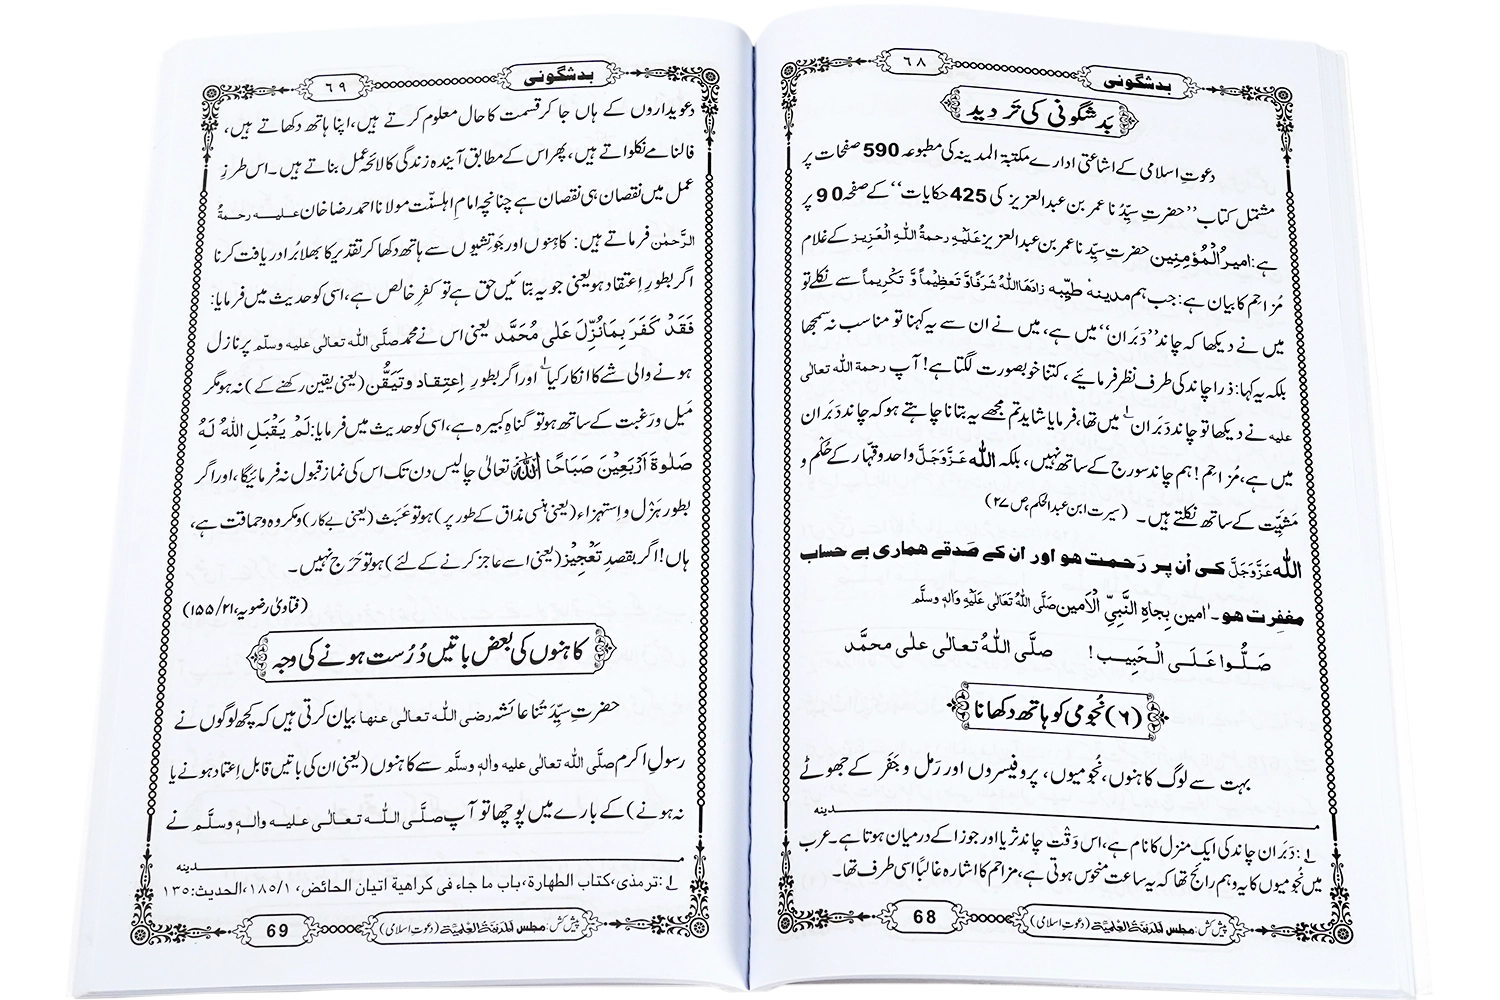 بدشگونی
٦٨
بَدشگونی کی تَردید
دعوتِ اسلامی کے اشاعتی ادارے مکتبۃ المدینہ کی مطبوعہ 590 صفحات پر
مشتمل کتاب ’’حضرتِ سیِّدُنا عمر بن عبدالعزیز کی 425 حکایات‘‘ کے صفحہ 90 پر
ہے: امیرُ الْمُؤْمِنِین حضرتِ سیِّدنا عمر بن عبدالعزیز عَلَیْہِ رحمۃُ اللہِ الْعَزِیز کے غلام
مُزاحِم کا بیان ہے: جب ہم مدینہ طیِّبہ زادَھَا اللہُ شَرَفًا وَّ تَعظِیْماً وَّ تَکْرِیماً سے نکلے تو
میں نے دیکھا کہ چاند ’’دَبَران‘‘ میں ہے، میں نے ان سے یہ کہنا تو مناسب نہ سمجھا
بلکہ یہ کہا: ذرا چاند کی طرف نظر فرمائیے، کتنا خوبصورت لگتا ہے! آپ رحمۃ اللہ تعالٰی
علیہ نے دیکھا تو چاند دَبَران ۱؎ میں تھا، فرمایا شاید تم مجھے یہ بتانا چاہتے ہو کہ چاند دَبَران
میں ہے، مُزاحِم! ہم چاند سورج کے ساتھ نہیں، بلکہ اللہ عَزَّوَجَلَّ واحد و قہّار کے حُکْم و
مَشِیَّت کے ساتھ نکلتے ہیں۔ (سیرت ابن عبدالحکم، ص ٢٧)
اللہ عَزَّوَجَلَّ کی اُن پر رَحمت ہو اور ان کے صَدقے ہماری بے حساب
مغفِرت ہو۔ اٰمین بِجاہِ النَّبِیِّ الْاَمین صَلَّی اللہُ تَعَالٰی عَلَیْہِ وَاٰلِہٖ وسلَّم
صَلُّوا عَلَی الْحَبِیب! صلَّی اللہُ تعالٰی علٰی محمَّد
(٦) نُجومی کو ہاتھ دکھانا
بہت سے لوگ کاہنوں، نُجومیوں، پروفیسروں اور رَمل و جَفَر کے جھوٹے
مدینہ
۱؎: دَبَران چاند کی ایک منزل کا نام ہے، اس وَقْت چاند ثریا اور جوزا کے درمیان ہوتا ہے۔ عرب
میں نُجومیوں کا یہ وہم رائج تھا کہ یہ ساعت منحوس ہوتی ہے، مزاحم کا اشارہ غالباً اسی طرف تھا۔
پیش کش: مجلس المدینۃ العلمیۃ (دعوتِ اسلامی)
68
بدشگونی
٦٩
دعویداروں کے ہاں جا کر قسمت کا حال معلوم کرتے ہیں، اپنا ہاتھ دکھاتے ہیں،
فالنامے نکلواتے ہیں، پھر اس کے مطابق آیندہ زندگی کا لائحہ عمل بناتے ہیں۔ اس طرزِ
عمل میں نقصان ہی نقصان ہے چنانچہ امامِ اہلسنّت مولانا احمد رضا خان علیہ رحمۃُ
الرَّحمٰن فرماتے ہیں: کاہِنوں اور جَوتِشیوں سے ہاتھ دکھا کر تقدیر کا بھلا بُرا دریافت کرنا
اگر بطورِ اِعتقاد ہو یعنی جو یہ بتائیں حق ہے تو کفرِ خالص ہے، اسی کو حدیث میں فرمایا:
فَقَدْ کَفَرَ بِمَا نُزِّلَ عَلٰی مُحَمَّد یعنی اس نے محمد صلَّی اللہ تعالٰی علیہ وسلَّم پر نازل
ہونے والی شے کا انکار کیا ۱؎ اور اگر بطورِ اِعتِقاد وتَیَقُّن (یعنی یقین رکھنے کے) نہ ہو مگر
مَیل ورَغبت کے ساتھ ہو تو گناہِ کبیرہ ہے، اسی کو حدیث میں فرمایا: لَمْ یَقْبَلِ اللہُ لَہٗ
صَلٰوۃَ اَرْبَعِیْنَ صَبَاحًا اللہ تعالٰی چالیس دن تک اس کی نماز قبول نہ فرمائیگا، اور اگر
بطورِ ہَزْل و اِستہزاء (یعنی ہنسی مذاق کے طور پر) ہو تو عَبَث (یعنی بے کار) و مکروہ و حماقت ہے،
ہاں! اگر بقصدِ تَعْجِیْز (یعنی اسے عاجز کرنے کے لئے) ہو تو حَرَج نہیں۔
(فتاویٰ رضویہ، ٢١/١٥٥)
کاہنوں کی بعض باتیں دُرُست ہونے کی وجہ
حضرتِ سیِّدَتُنا عائشہ رضی اللہ تعالٰی عنھا بیان کرتی ہیں کہ کچھ لوگوں نے
رسولِ اکرم صلَّی اللہ تعالٰی علیہ واٰلہٖ وسلَّم سے کاہنوں (یعنی ان کی باتیں قابلِ اِعتماد ہونے یا
نہ ہونے) کے بارے میں پوچھا تو آپ صلَّی اللہ تعالٰی علیہ واٰلہٖ وسلَّم نے
مدینہ
۱؎: ترمذی، کتاب الطھارۃ، باب ما جاء فی کراھیۃ اتیان الحائض، ١/١٨٥، الحدیث: ١٣٥
پیش کش: مجلس المدینۃ العلمیۃ (دعوتِ اسلامی)
69